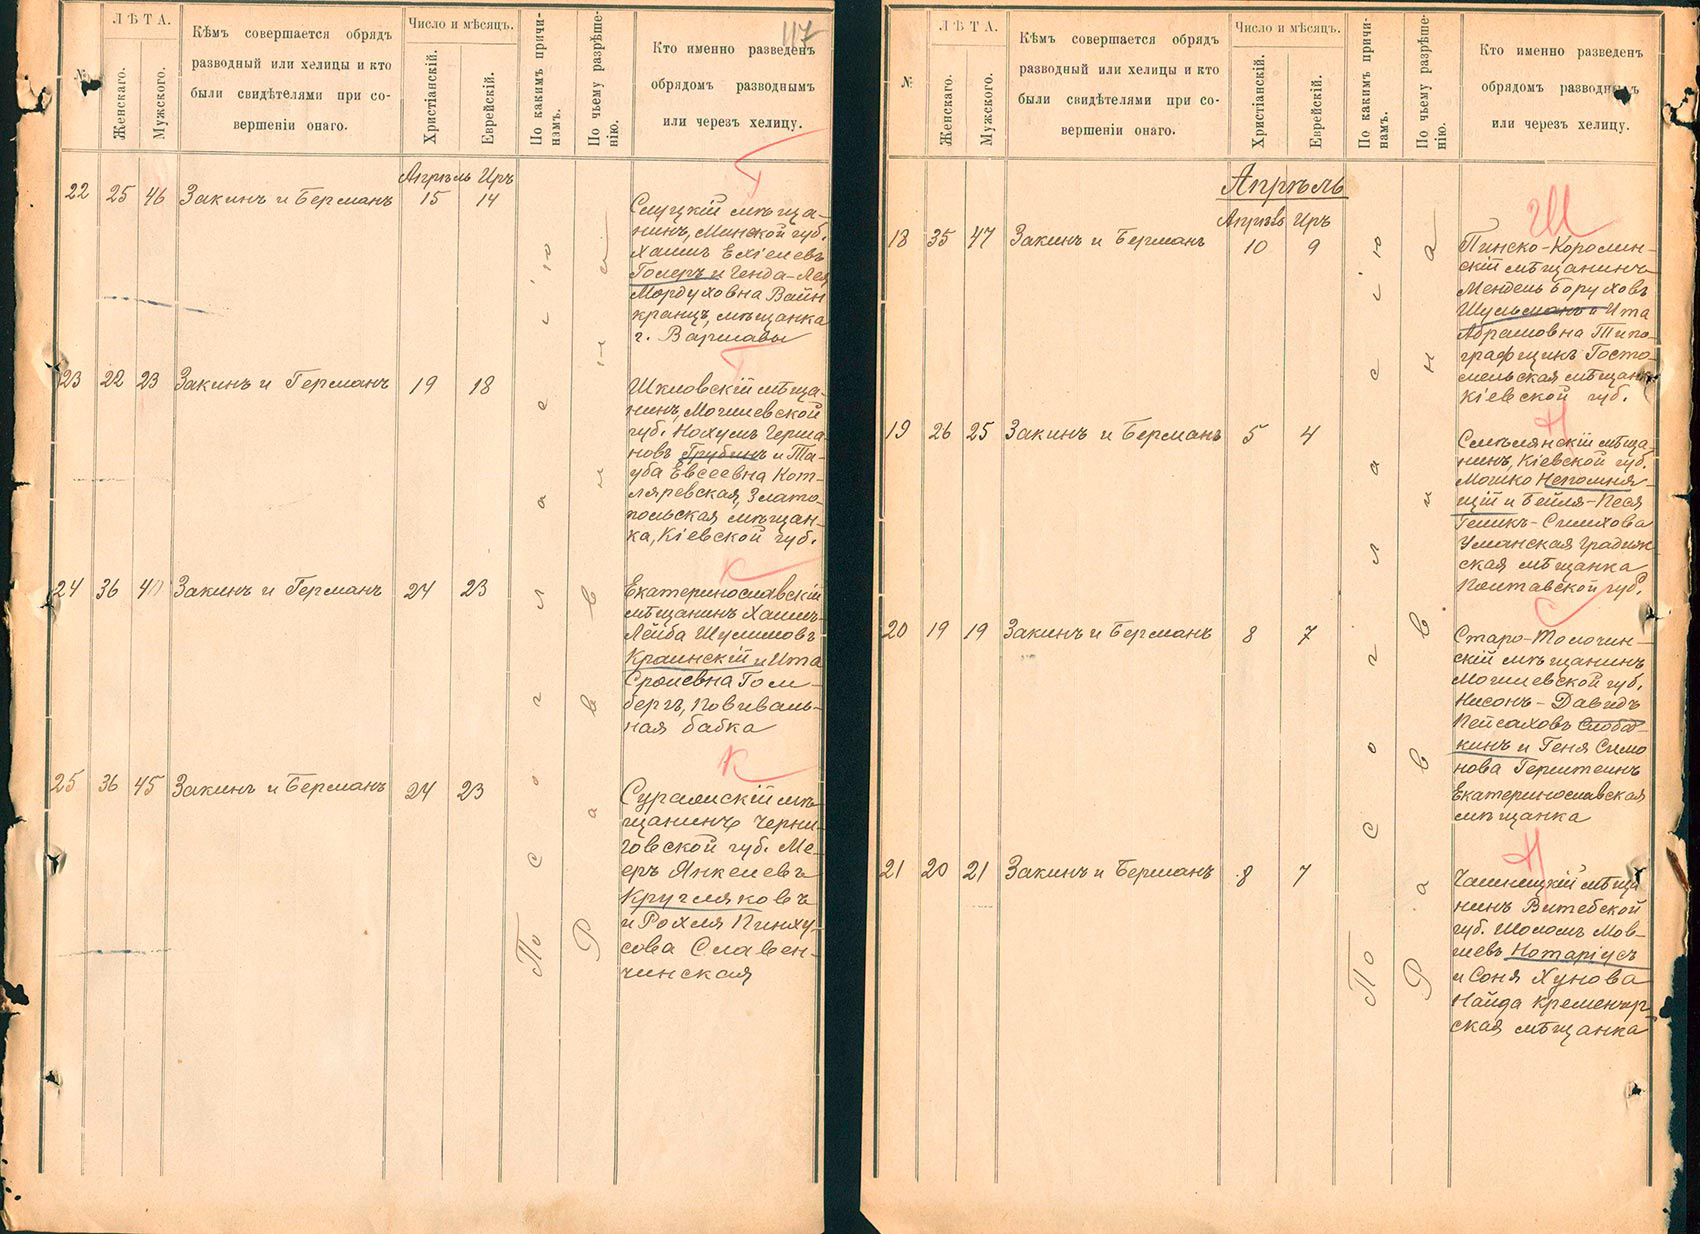 117
№
ЛѢТА.
Женскаго.
Мужского.
Кѣмъ совершается обрядъ
разводный или хелицы и кто
были свидѣтелями при со-
вершеніи онаго.
Число и мѣсяцъ.
Христіанскій.
Еврейскій.
По какимъ причи-
намъ.
По чьему разрѣше-
нію.
Кто именно разведенъ
обрядомъ разводнымъ
или черезъ хелицу.
Апрѣль Иръ
22 25 46 Закинъ и Берманъ 15 14
Г
Слуцкій мѣща-
нинъ, Минской губ.
Хаимъ Ехіелевъ
Голеръ и Генда-Лея
Мордуховна Вайн
кранцъ, мѣщанка
г. Варшавы
23 22 23 Закинъ и Берманъ 19 18
Г
Шкловскій мѣща-
нинъ, Могилевской
губ. Нохумъ Герша-
новъ Грубинъ и Та-
уба Евсеевна Кот-
ляревская, Злато-
польская мѣщан-
ка, Кіевской губ.
24 36 40 Закинъ и Берманъ 24 23
К
Екатеринославскій
мѣщанинъ Хаимъ-
Лейба Шулимовъ
Краинскій и Ита
Сролевна Гол-
бергъ, повиваль-
ная бабка
25 36 45 Закинъ и Берманъ 24 23
К
Суражскій мѣ-
щанинъ Черни-
говской губ. Ме-
еръ Янкелевъ
Кругляковъ
и Рохля Пинху-
сова Славен-
чинская
По согласію
Раввина
№
ЛѢТА.
Женскаго.
Мужского.
Кѣмъ совершается обрядъ
разводный или хелицы и кто
были свидѣтелями при со-
вершеніи онаго.
Число и мѣсяцъ.
Христіанскій.
Еврейскій.
По какимъ причи-
намъ.
По чьему разрѣше-
нію.
Кто именно разведенъ
обрядомъ разводнымъ
или черезъ хелицу.
Апрѣль
Апрѣль Иръ
18 35 47 Закинъ и Берманъ 10 9
Ш
Пинско-Королин-
скій мѣщанинъ
Мендель Боруховъ
Шульманъ и Ита
Абрамовна Типо-
графщикъ Госто-
мельская мѣщанк
Кіевской губ.
19 26 25 Закинъ и Берманъ 5 4
Н
Смѣлянскій мѣща-
нинъ, Кіевской губ.
Мошко Непомня-
щій и Бейля-Песя
Геликъ-Силихова
Уманская Градиж-
ская мѣщанка
Полтавской губ.
20 19 19 Закинъ и Берманъ 8 7
С
Старо-Толочин-
скій мѣщанинъ
Могилевской губ.
Нисонъ-Давидъ
Пейсаховъ Слобод-
кинъ и Геня Симо
нова Герштеинъ
Екатеринославская
мѣщанка
21 20 21 Закинъ и Берманъ 8 7
Н
Чашницкій мѣща
нинъ Витебской
губ. Шоломъ Мов-
шевъ Нотаріусъ
и Соня Хунова
Найда Кременчуг-
ская мѣщанка
По согласію
Раввина